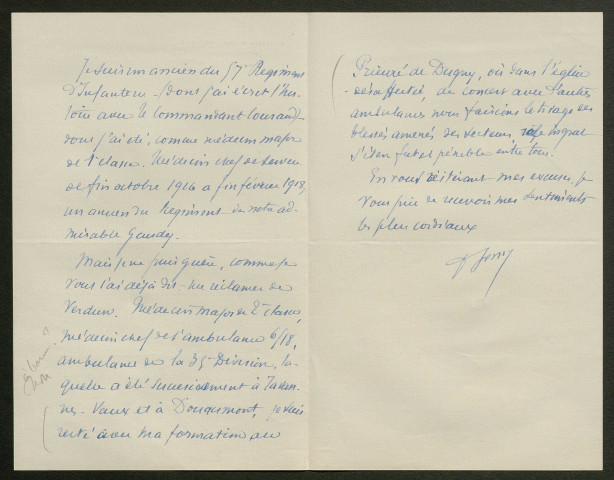 Je suis un ancien du 57e Regiment
d'Infanterie - (dont j'ai écrit l'his-
toire avec le Commandant
dont j'ai été, comme médecin major
de 1e classe. Médecin chef de service
de fin octobre 1916 à fin février 1918,
un ancien du Regiment de notre ad-
mirable Gaudy.
Mais je ne puis guère, comme je
vous l'ai déjà dit - me réclamer de
Verdun. Médecin major de 2e classe,
médecin chef de l'ambulance 6/18,
ambulance de la 35e Division, la-
quelle a été successivement à
Vaux et à Douaumont, je suis
resté avec ma formation au
Prieuré de Dugny, où dans l'église
désaffectée, de concert avec d'autres
ambulances nous faisions le triage des
blessés amenés des secteurs
s'il en fut et pénible entre tous.
En vous réitérant mes excuses, je
vous prie de recevoir mes sentiments
les plus cordiaux